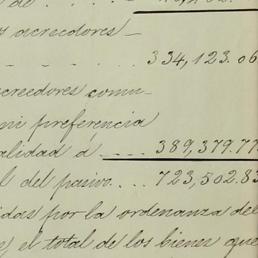 de
s acreedores —
334,123.06
creedores comu-
ni preferencia
alidad á 389,379.77
l del pasivo 723,502.83
das por la ordenanza del
el total de los bienes que